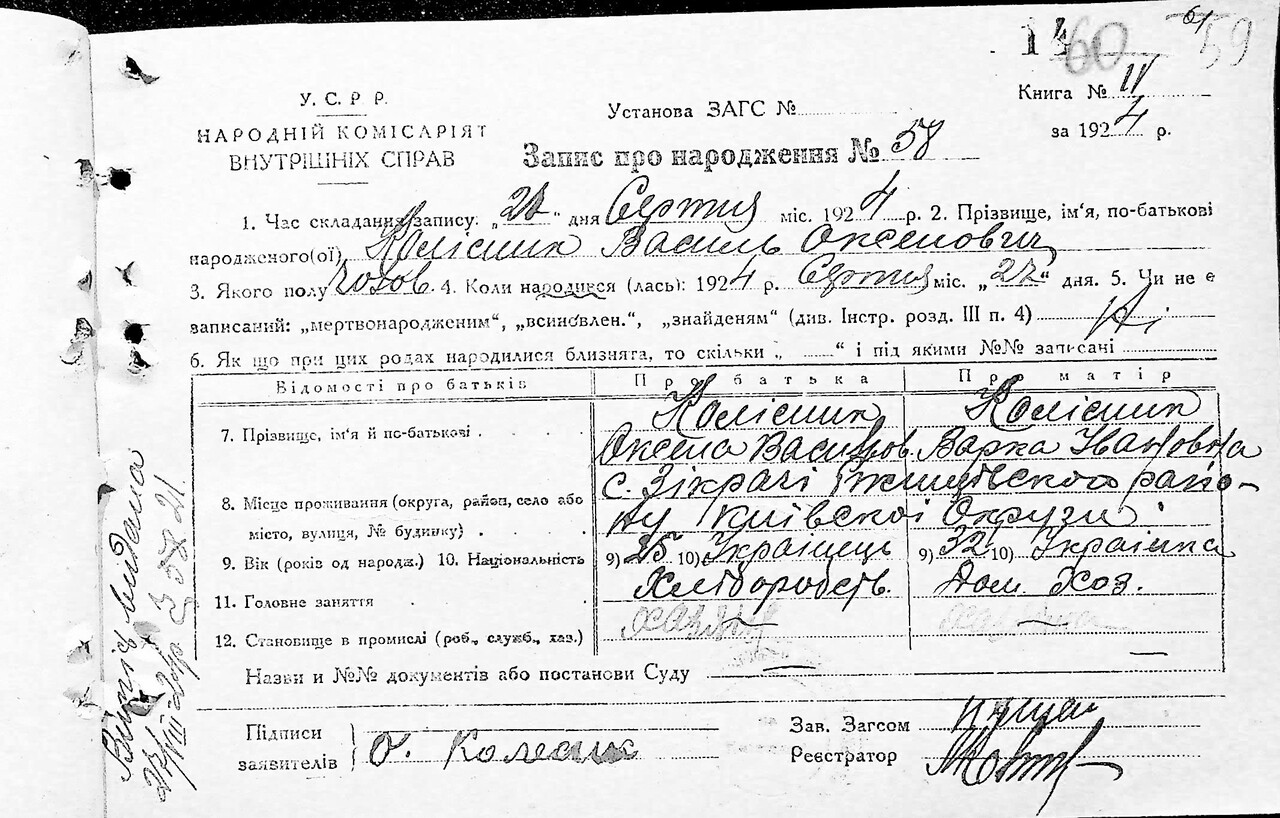 14 60 61 59
Книга № IV
за 1924 р.
У. С. Р Р.
НАРОДНІЙ КОМІСАРІЯТ
ВНУТРІШНІХ СПРАВ
Установа ЗАГС №
Запис про народження № 58
1. Час складання запису: „22“ дня Серпня міс. 1924 р. 2. Прізвище, ім‘я, по-батькові
народженого(ої) Колісник Василь Оксенович
3. Якого полу чолов. 4. Коли народився (лась): 1924 р. Серпня міс. „22“ дня. 5. Чи не є
записаний: „мертвонародженим“, „всиновлен.“, „знайденям“ (див. Інстр. розд. III п. 4) Ні
6. Як що при цих родах народилися близнята, то скільки „ “ і під якими №№ записані
Відомості про батьків Про батька Про матір
Колісник Колісник
7. Прізвище, ім‘я й по-батькові
Оксена Васильов. Варка Івановна
с. Зікрачі Ржищівского райо-
8. Місце проживання (округа, район, село або
місто, вулиця, № будинку)
ну Київскої Округи.
9. Вік (років од народж.) 10. Національність 9) 25 10) Українець 9) 32 10) Українка
11. Головне заняття Хліборобств. Дом. Хоз.
12. Становище в промислі (роб., служб., хаз.) хазяїн
Назви и №№ документів або постанови Суду —
Підписи
заявителів
О. Колесник
Зав. Загсом
Реєстратор
Витяг видано